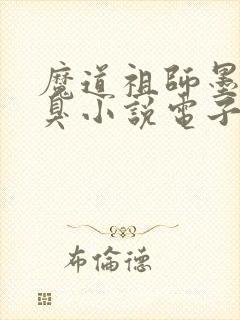 魔道祖師墨
臭小説電子
布倫德